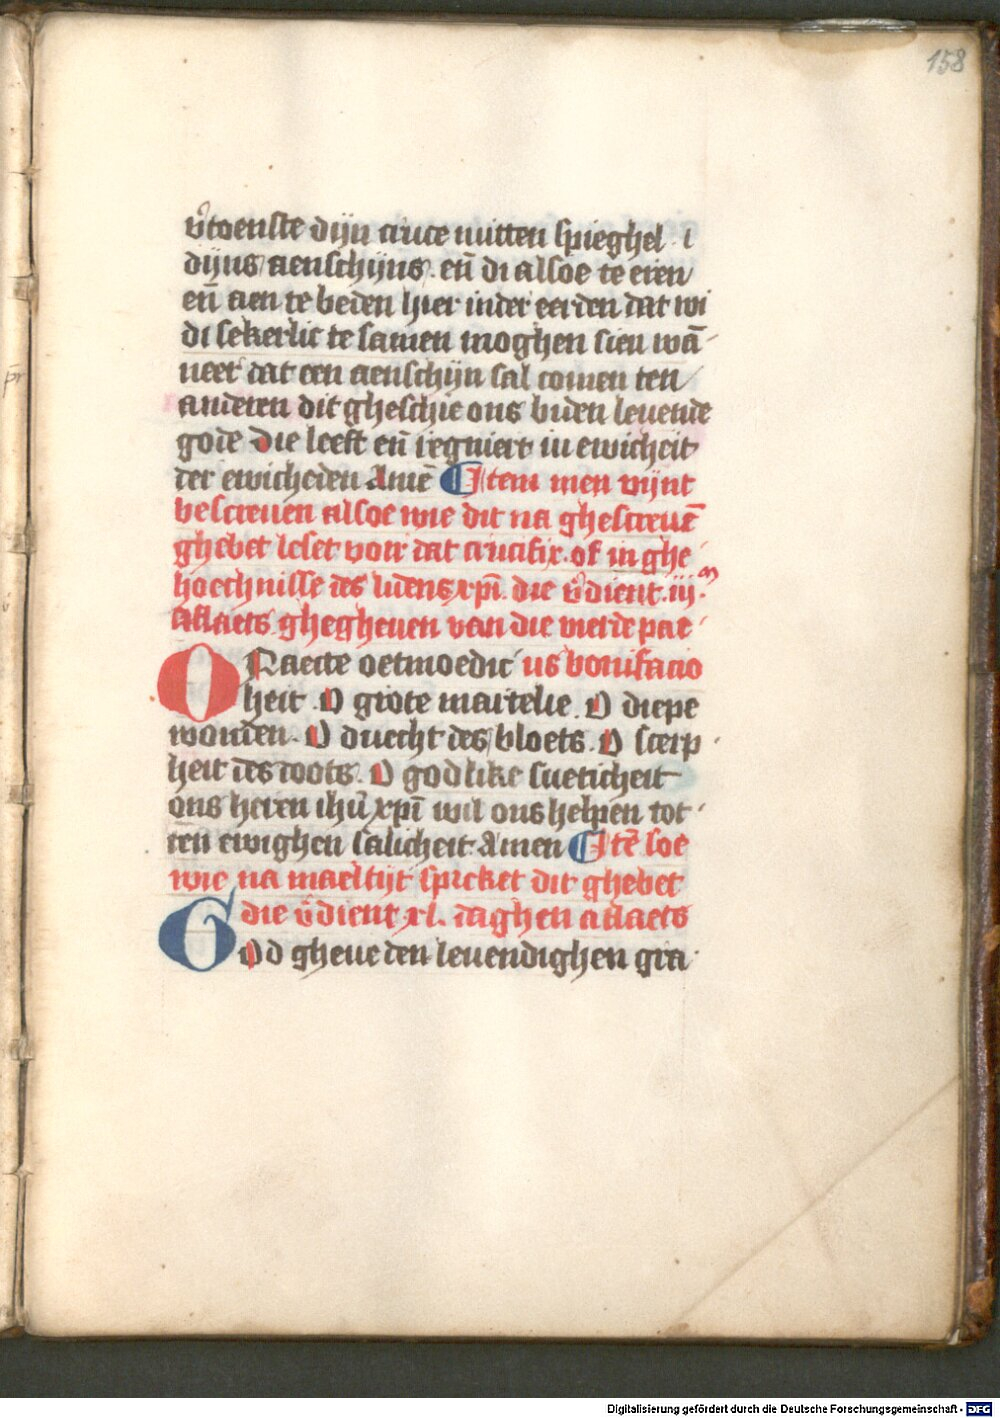 158
v̾toenste dijn cruce mitten spieghel i
dijns aenschijns. en̄ di alsoe te eren
en̄ aen te beden hier inder eerden dat wi
di sekerlic te samen moghen sien wā-
neer dat een aenschijn sal comen ten
anderen dit gheschie ons biden leuende
gode Die leeft en̄ regniert in ewicheit
der ewicheden Amē Item men vijnt
bescreuen alsoe wie dit na ghescreuē
ghebet leset voir dat crucifix. of in ghe
hoechnisse des lidens xp̄i. die v̾dient .iij.m
Aflaets ghegheuen van die vierde pae
us bonifacio
ORaecte oetmoedic
heit. O grote martelie. O diepe
wonden. O duecht des bloets. O scerp
heit des doots. O godlike sueticheit
ons heren ihū xp̄i wil ons helpen tot
ten ewighen salicheit Amen Itē soe
wie na maeltijt spreket dit ghebet
die v̾dient xl. daghen aflaets
GOd gheue den leuendighen gra
Digitalisierung gefördert durch die Deutsche Forschungsgemeinschaft - DFG